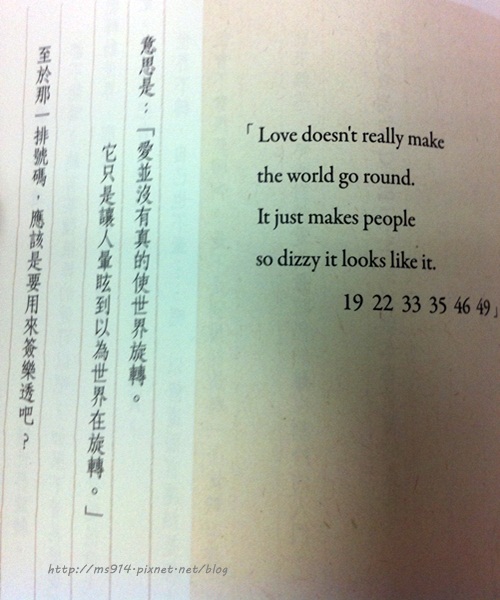 「Love doesn't really make
the world go round.
It just makes people
so dizzy it looks like it.
19 22 33 35 46 49」
意思是：「愛並沒有真的使世界旋轉。
它只是讓人暈眩到以為世界在旋轉。」
至於那一排號碼，應該是要用來簽樂透吧？
http://ms914.pixnet.net/blog